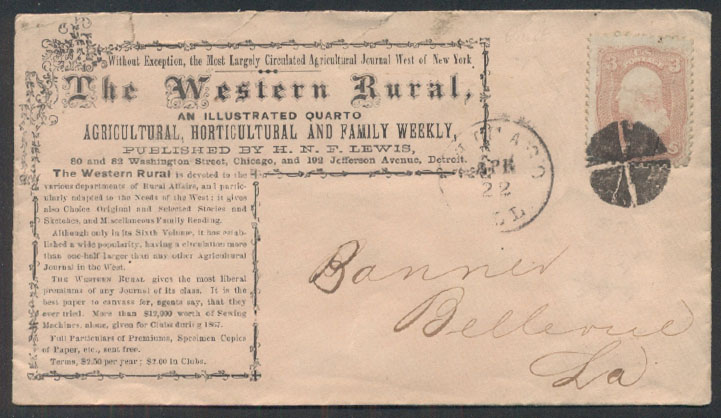 Without Exception, the Most Largely Circulated Agricultural Journal West of New York
The Western Rural,
AN ILLUSTRATED QUARTO
AGRICULTURAL, HORTICULTURAL AND FAMILY WEEKLY,
PUBLISHED BY H. N. F. LEWIS,
80 and 82 Washington Street, Chicago, and 102 Jefferson Avenue, Detroit.
The Western Rural is devoted to the
various departments of Rural Affairs, and partic-
ularly adapted to the Needs of the West; it gives
also Choice Original and Selected Stories and
Sketches, and Miscellaneous Family Reading.
Although only in its Sixth Volume, it has estab-
lished a wide popularity, having a circulation more
than one-half larger than any other Agricultural
Journal in the West.
THE WESTERN RURAL gives the most liberal
premiums of any Journal of its class. It is the
best paper to canvass for, agents say, that they
ever tried. More than $12,000 worth of Sewing
Machines, alone, given for Clubs during 1867.
Full Particulars of Premiums, Specimen Copies
of Paper, etc., sent free.
Terms, $2.50 per year; $2.00 in Clubs.
CHICAGO
APR
22
ILL
3 3
Banner
Bellevue
La